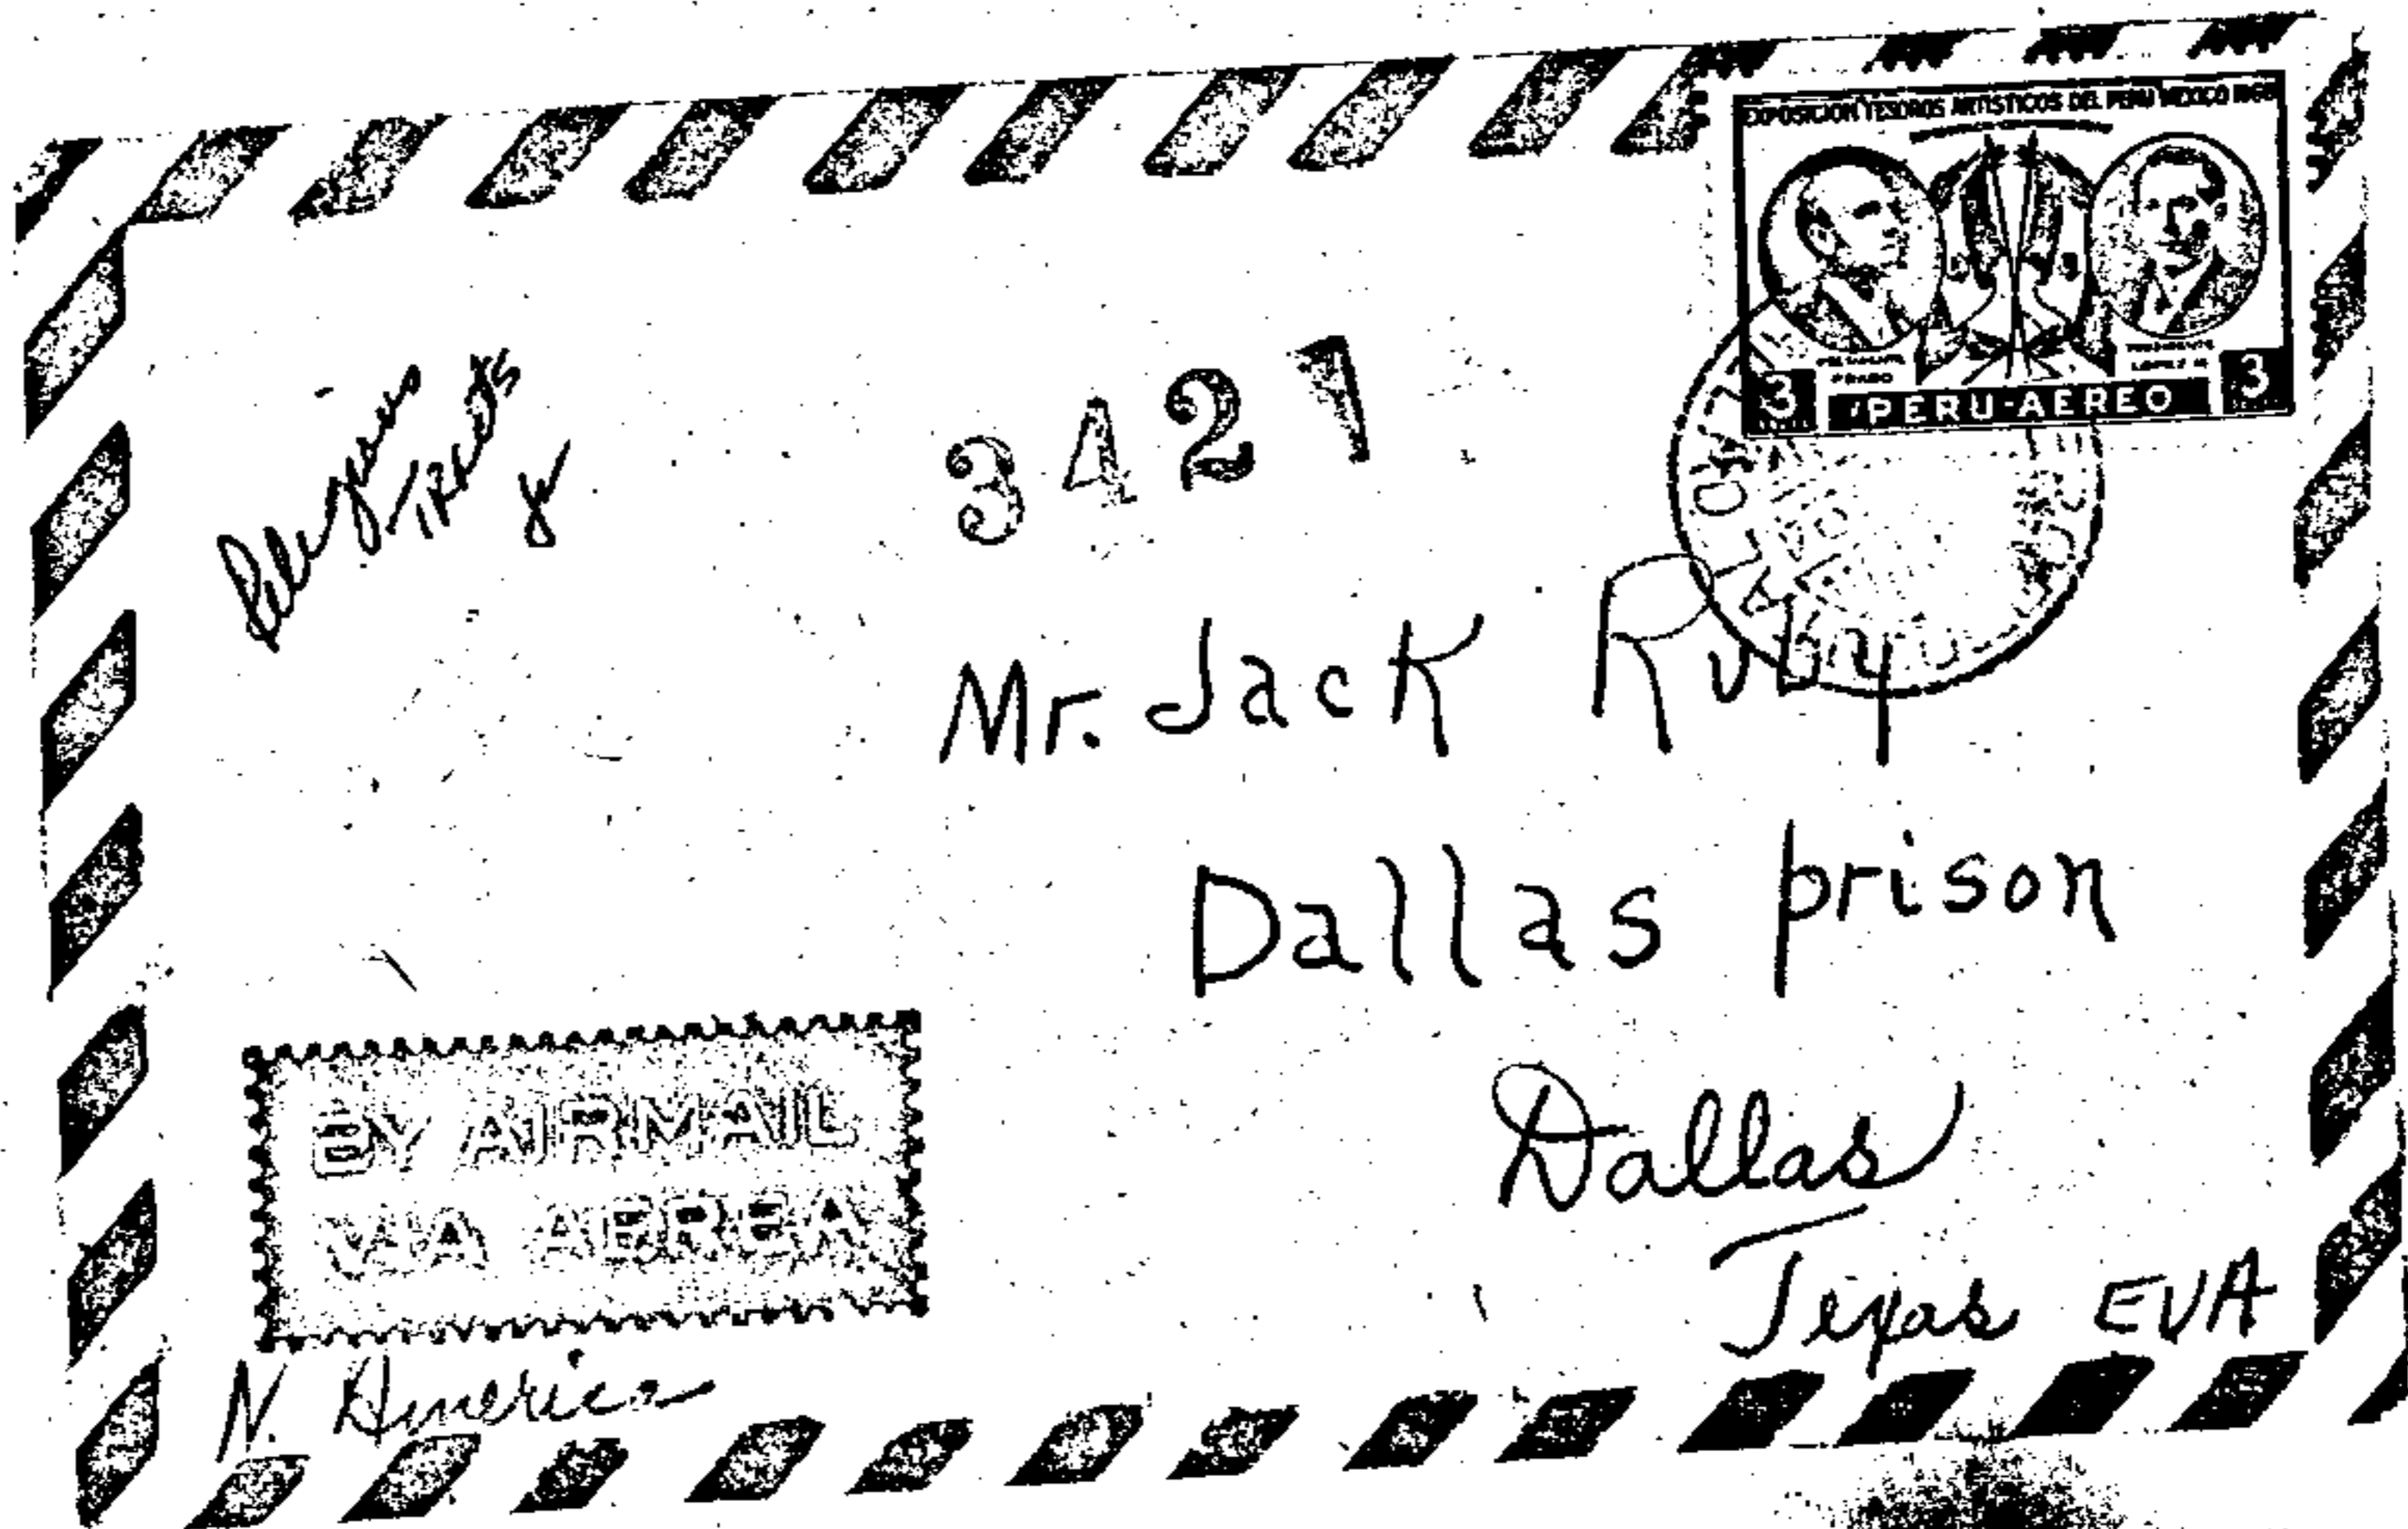 EXPOSICION TESOROS ARTISTICOS DEL PERU MEXICO
PRADO
LOPEZ M
3 PERU-AEREO 3
Religious
TRACTS
3421
Mr. Jack Ruby
Dallas prison
Dallas
Texas EVA
BY AIRMAIL
VIA AEREA
N. America